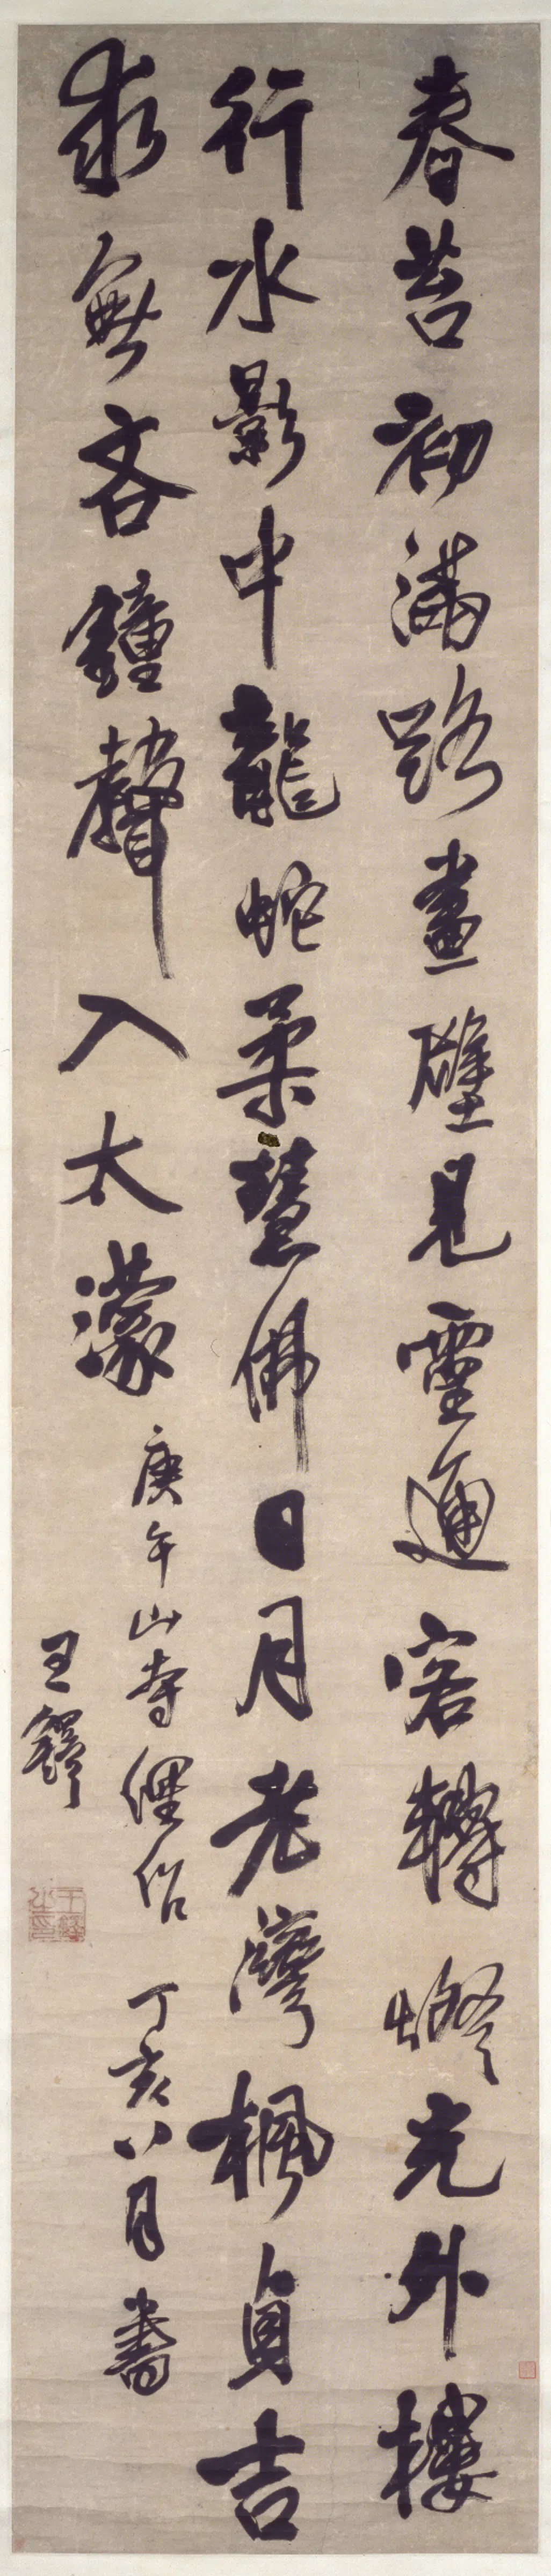 春苔初滿路畫壁見靈通客轉燈光外樓
行水影中龍蛇柔慧佛日月老灣楓貞吉
求無吝鐘聲入太濛
庚午山寺 丁亥八月書
王鐸
王鐸之印